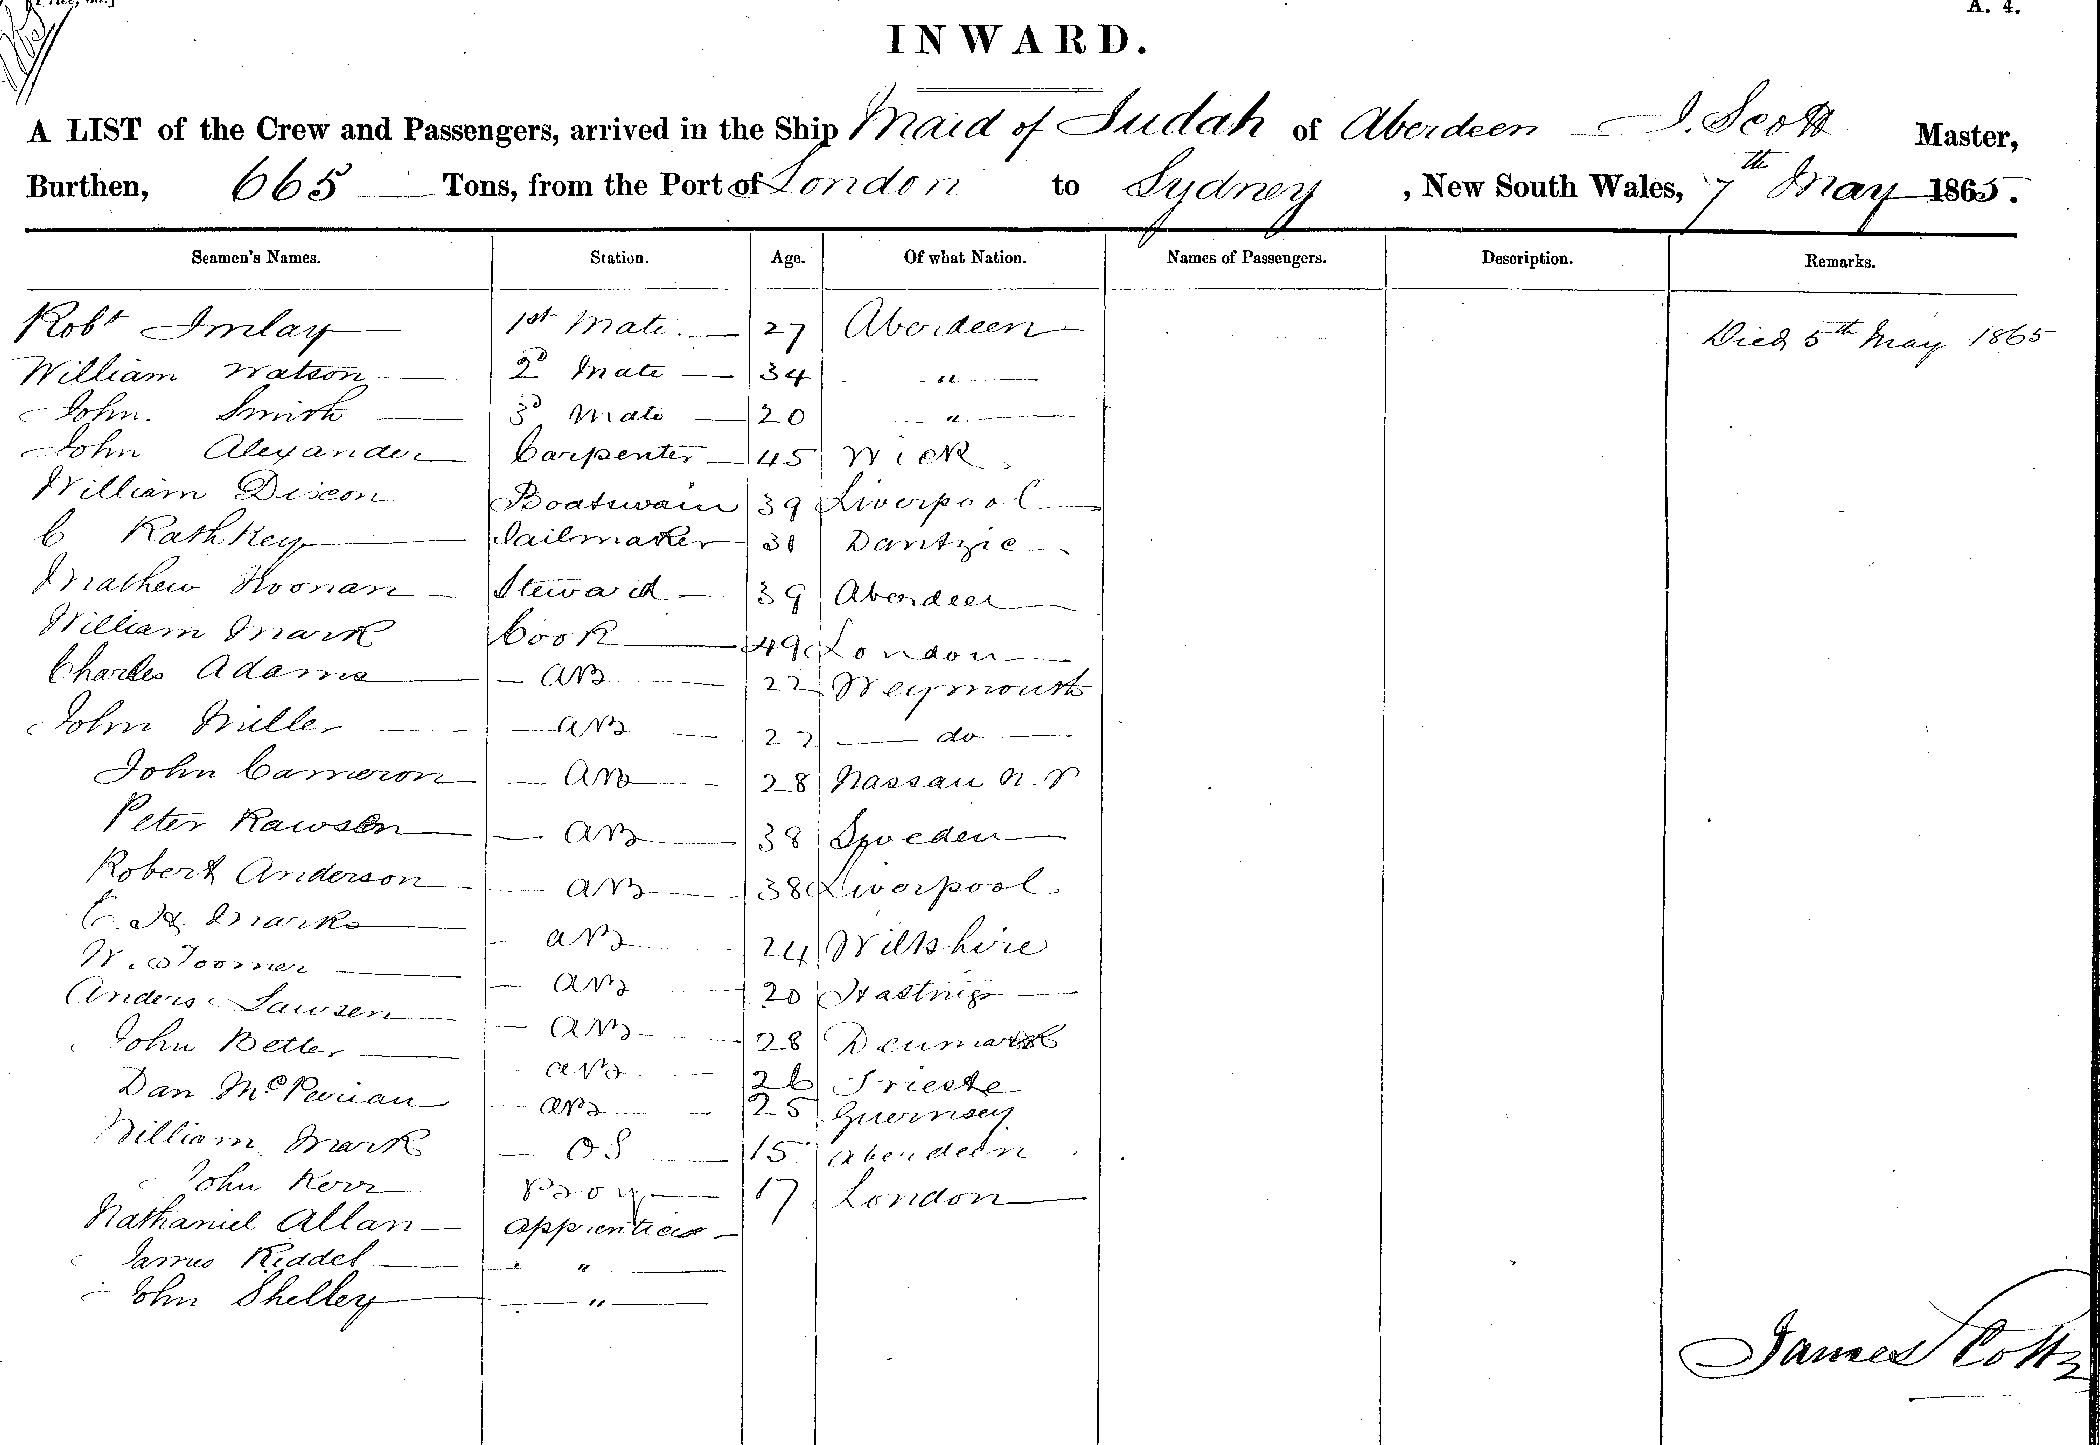 A. 4.
INWARD.
A LIST of the Crew and Passengers, arrived in the Ship Maid of Judah of Aberdeen J. Scott Master,
Burthen, 665 Tons, from the Port of London to Sydney, New South Wales, 7th May 1865.
Seamen's Names. Station. Age. Of what Nation. Names of Passengers. Description. Remarks.
Robt Imlay 1st Mate 27 Aberdeen Died 5th May 1865
William Watson 2d Mate 34 "
John Smith 3d Mate 20 "
John Alexander Carpenter 45 Wick
William Dixon Boatswain 39 Liverpool
C Rathkey Sailmaker 31 Dantzic
Mathew Noonan Steward 39 Aberdeen
William Mark Cook 49 London
Charles Adams AB 22 Weymouth
John Miller AB 22 do
John Cameron AB 28 Nassau N. P
Peter Rawson AB 38 Sweden
Robert Anderson AB 38 Liverpool
C. H. Marks AB 24 Wiltshire
W. Toomer AB 20 Hastings
Anders Lawsen AB 28 Denmark
John Better AB 26 Trieste
Dan AB 25 Guernsey
William Mark OS 15 Aberdeen
John Kerr Boy 17 London
Nathaniel Allan Apprentice
James Riddel "
John Shelley "
James Scott